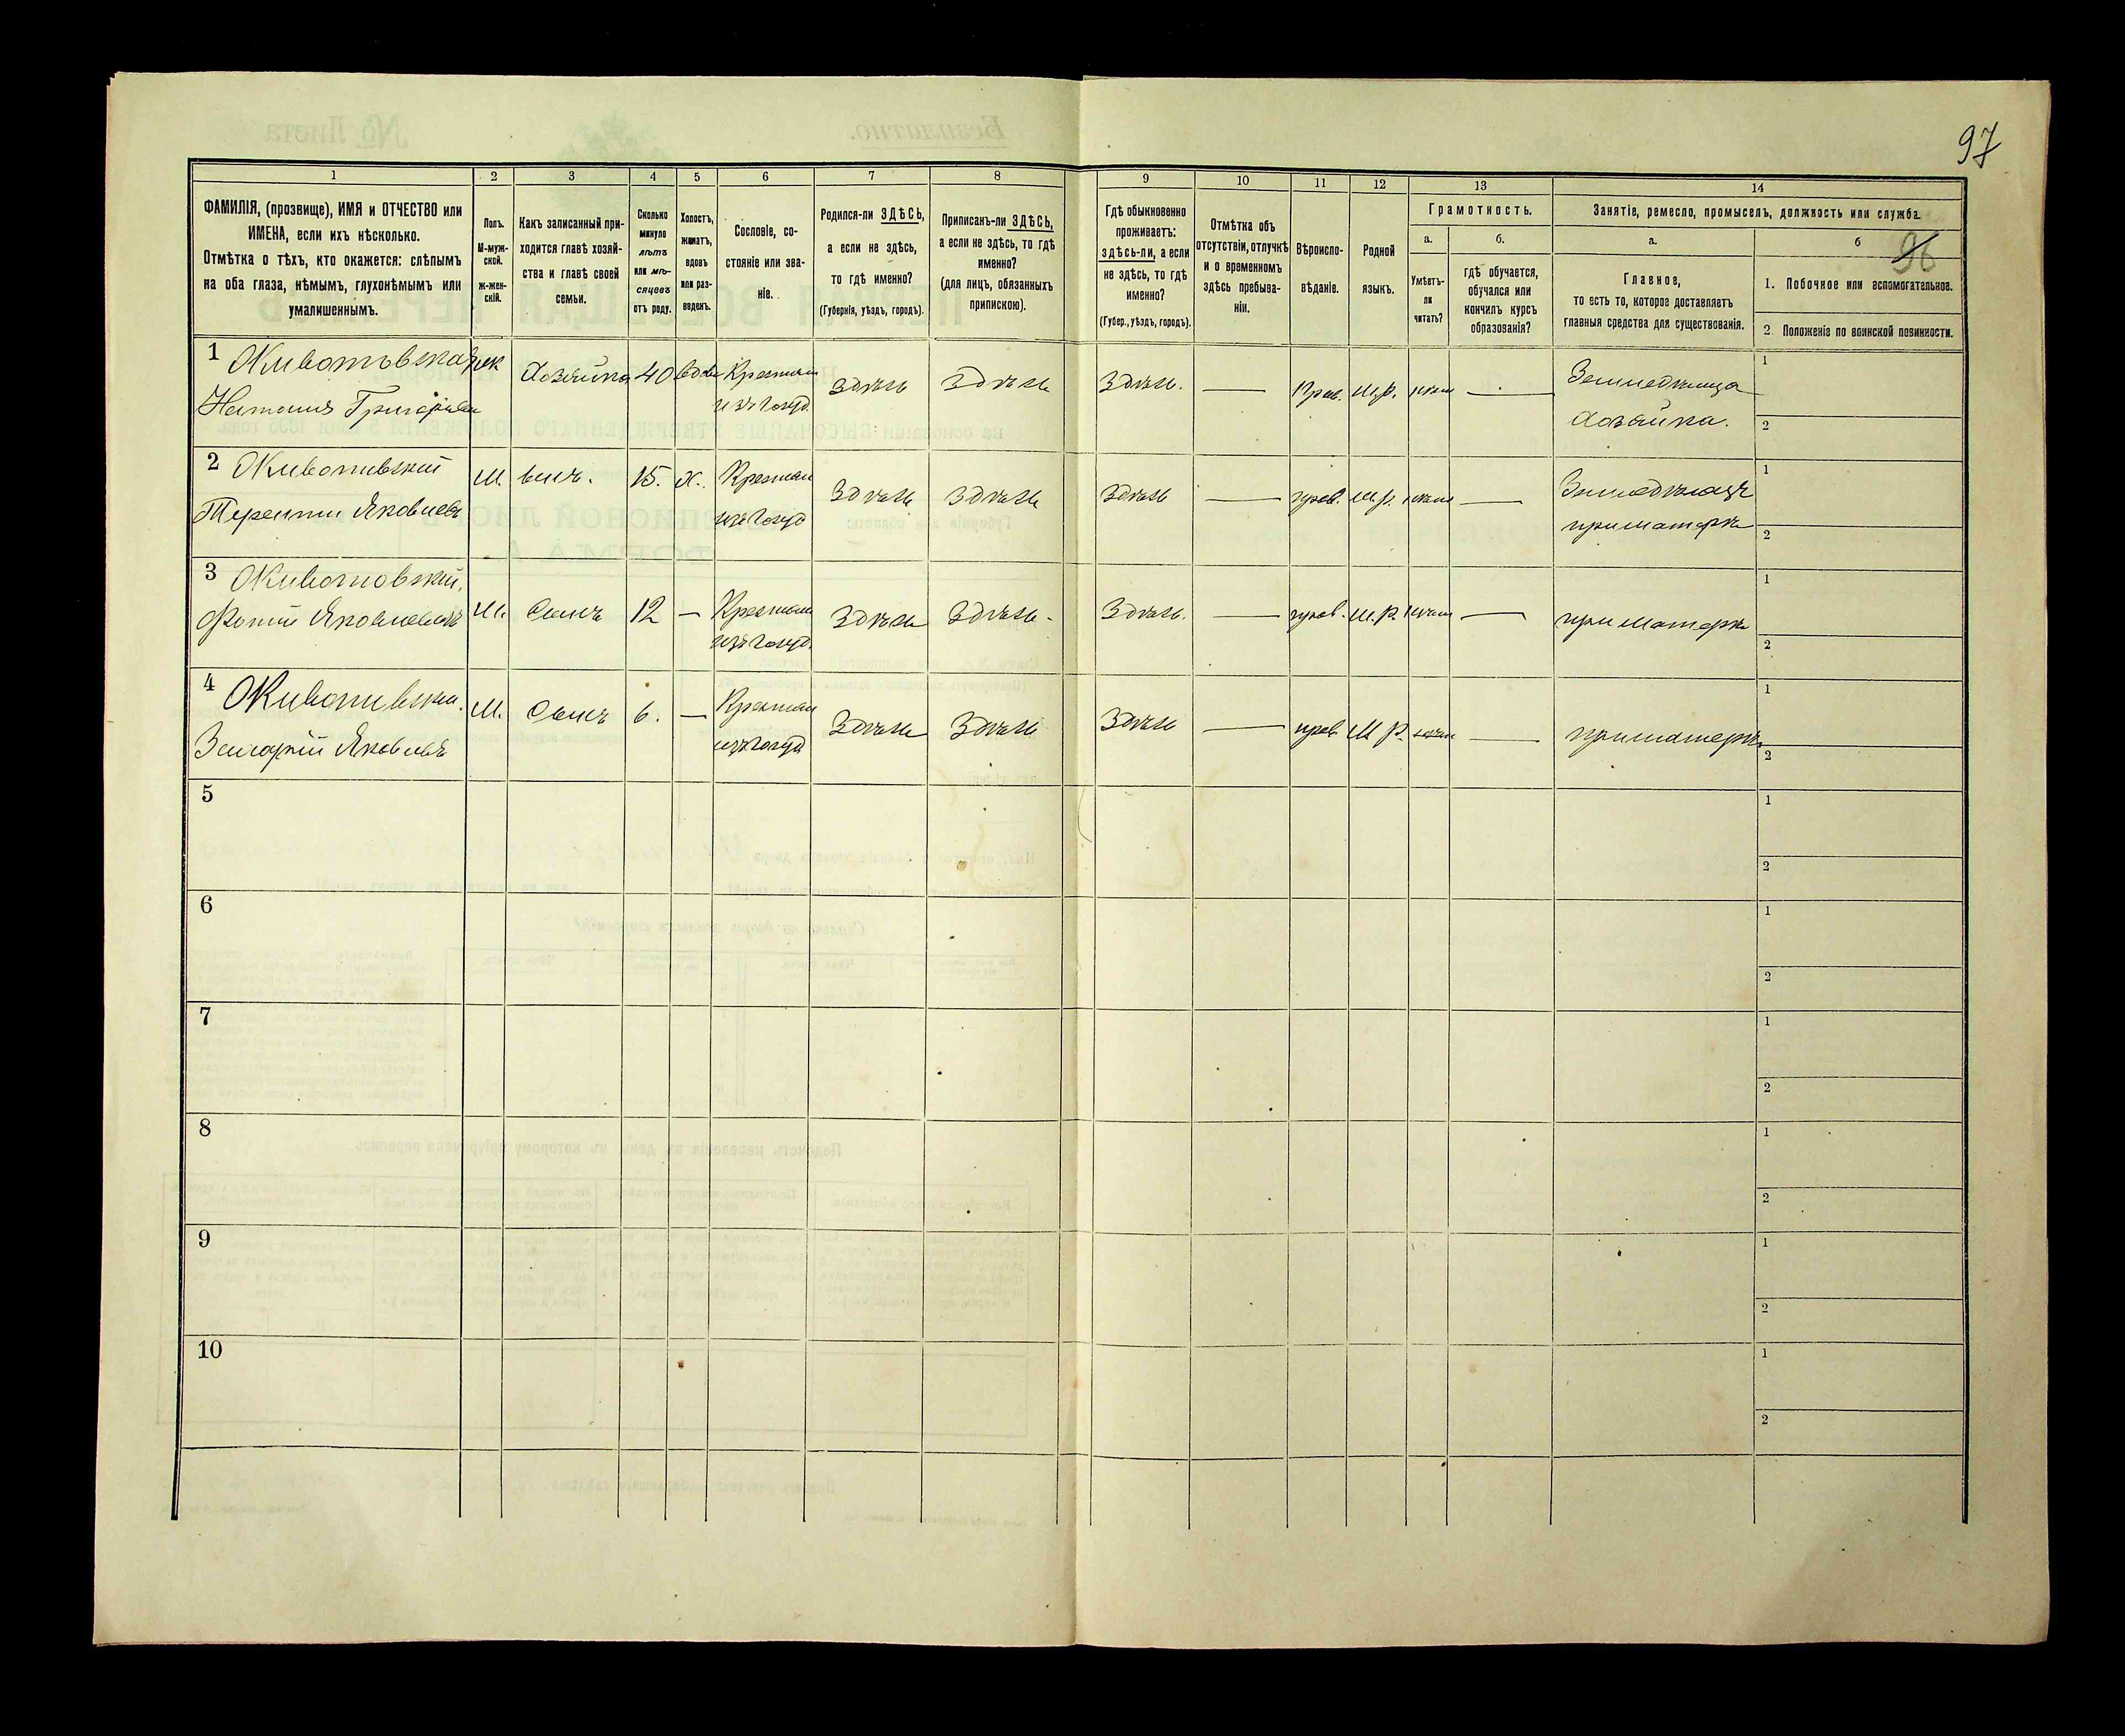 97
1 2 3 4 5 6 7 8 9 10 11 12 13 14
ФАМИЛІЯ, (прозвище), ИМЯ и ОТЧЕСТВО или
ИМЕНА, если ихъ нѣсколько.
Отмѣтка о тѣхъ, кто окажется: слѣпымъ
на оба глаза, нѣмымъ, глухонѣмымъ или
умалишеннымъ.
Полъ.
М-муж-
ской.
Ж-жен-
скій.
Какъ записанный при-
ходится главѣ хозяй-
ства и главѣ своей
семьи.
Сколько
минуло
лѣтъ
или мѣ-
сяцевъ
отъ роду.
Холостъ,
женатъ,
вдовъ
или раз-
веденъ.
Сословіе, со-
стояніе или зва-
ніе.
Родился-ли ЗДѢСЬ,
а если не здѣсь,
то гдѣ именно?
(Губернія, уѣздъ, городъ).
Приписанъ-ли ЗДѢСЬ,
а если не здѣсь, то гдѣ
именно?
(для лицъ, обязанныхъ
припискою).
Гдѣ обыкновенно
проживаетъ:
здѣсь-ли, а если
не здѣсь, то гдѣ
именно?
(Губер., уѣздъ, городъ).
Отмѣтка объ
отсутствіи, отлучкѣ
и о временномъ
здѣсь пребыва-
ніи.
Вѣроиспо-
вѣданіе.
Родной
языкъ.
Грамотность.
а.
Умѣетъ-
ли
читать?
б.
гдѣ обучается,
обучался или
кончилъ курсъ
образованія?
Занятіе, ремесло, промыселъ, должность или служба.
а.
Главное,
то есть то, которое доставляетъ
главныя средства для существованія.
б
96
1. Побочное или вспомогательное.
2. Положеніе по воинской повинности.
1 Животовская жен Хозяйка 40 вдова Крестьян Здѣсь Здѣсь Здѣсь. — Прав. М.р. нѣт — Земледѣлица 1
Наталия Григорьева изъ Госуд. Хозяйка. 2
2 Животивский М. сынъ. 15. х. Крестьян Здѣсь Здѣсь Здѣсь — прав. М.р. — Земледѣлецъ 1
Терентий Яковлевъ изъ Госуд при матери 2
3 Животовский. М. Сынъ 12 — Крестьян Здѣсь Здѣсь - Здѣсь. — прав. М.р. — при матери 1
Фотий Яковлевичъ изъ Госуд. 2
4 Животивский. М. Сынъ 6. — Крестьян Здѣсь Здѣсь Здѣсь — прав М.р. — при матери 1
Захарий Яковлевъ изъ Госуд 2
5 1
2
6 1
2
7 1
2
8 1
2
9 1
2
10 1
2